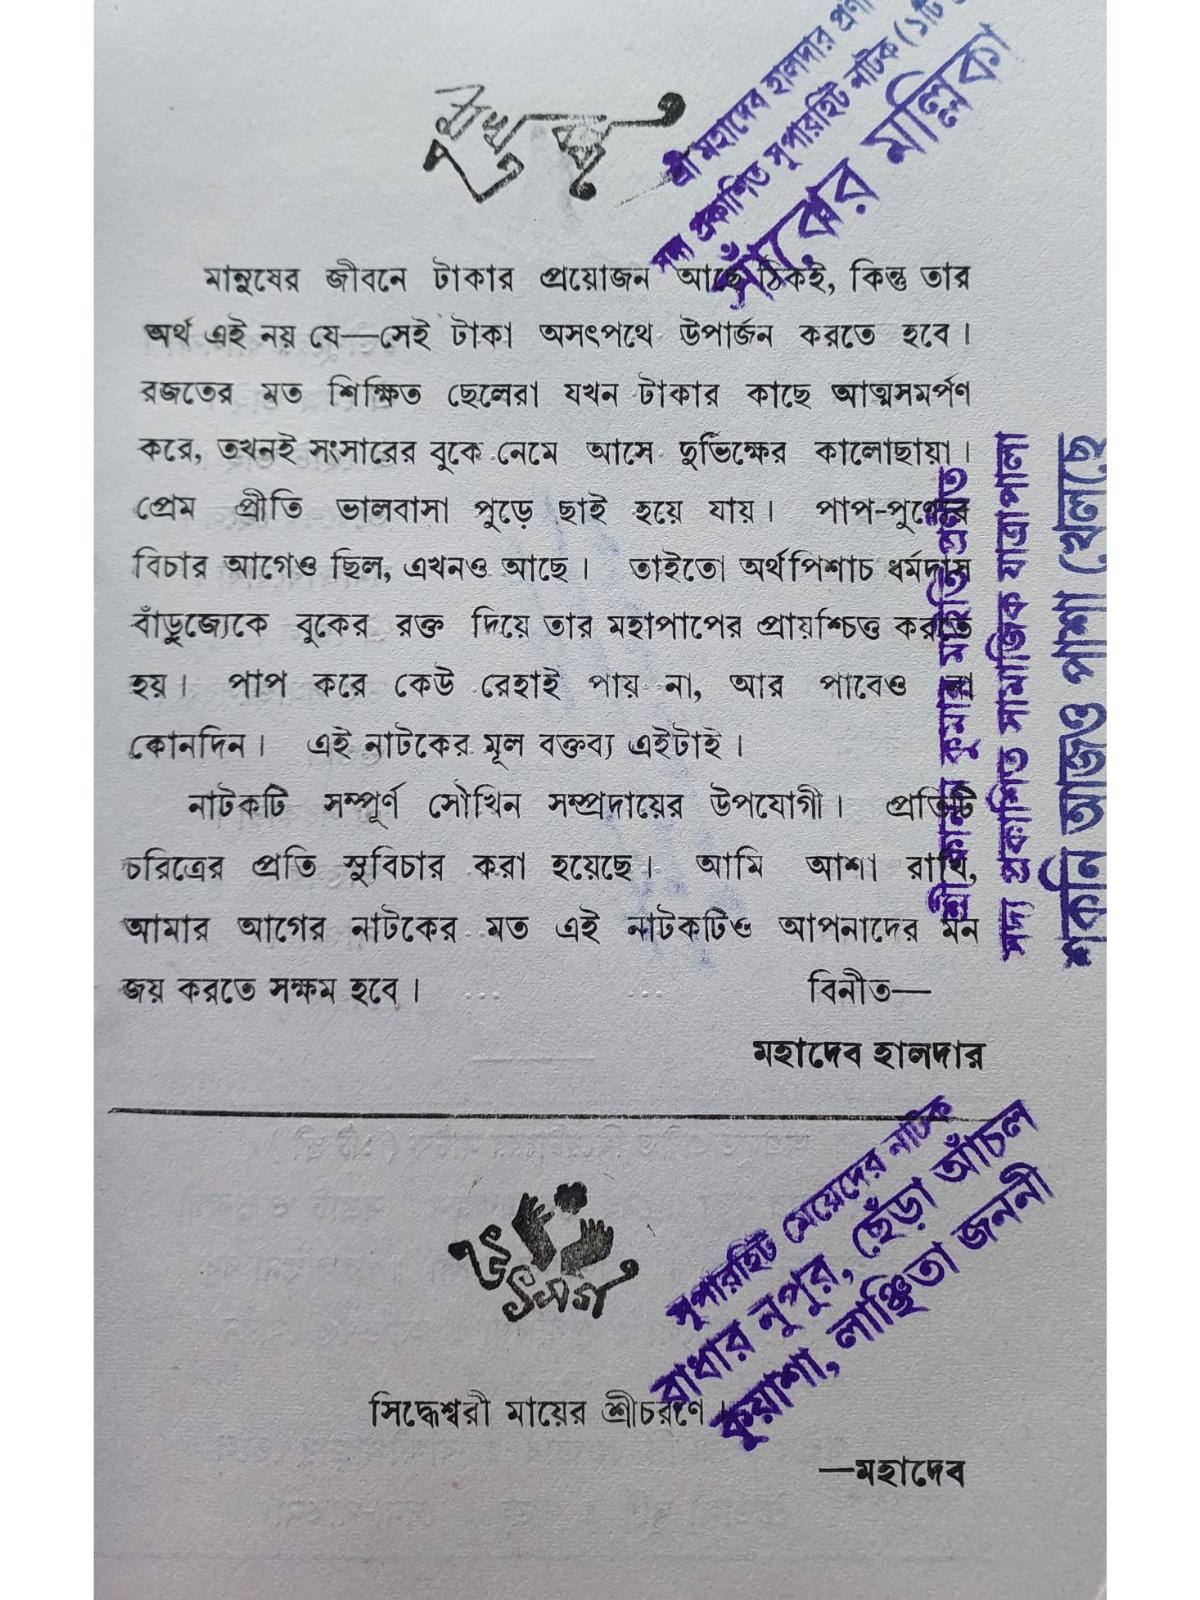 মুখবন্ধ
শ্রী মহাদেব হালদার
সদ্য প্রকাশিত সুপারহিট নাটক (১টি
সাঁঝের মল্লিকা
মানুষের জীবনে টাকার প্রয়োজন আছে ঠিকই, কিন্তু তার
অর্থ এই নয় যে—সেই টাকা অসৎপথে উপার্জন করতে হবে।
রজতের মত শিক্ষিত ছেলেরা যখন টাকার কাছে আত্মসমর্পণ
করে, তখনই সংসারের বুকে নেমে আসে দুর্ভিক্ষের কালোছায়া।
প্রেম প্রীতি ভালবাসা পুড়ে ছাই হয়ে যায়। পাপ-পুণ্যের
বিচার আগেও ছিল, এখনও আছে। তাইতো অর্থপিশাচ ধর্মদাস
বাঁড়ুজ্যেকে বুকের রক্ত দিয়ে তার মহাপাপের প্রায়শ্চিত্ত করতে
হয়। পাপ করে কেউ রেহাই পায় না, আর পাবেও না
কোনদিন। এই নাটকের মূল বক্তব্য এইটাই।
নাটকটি সম্পূর্ণ সৌখিন সম্প্রদায়ের উপযোগী। প্রতিটি
চরিত্রের প্রতি সুবিচার করা হয়েছে। আমি আশা রাখি,
আমার আগের নাটকের মত এই নাটকটিও আপনাদের মন
জয় করতে সক্ষম হবে। বিনীত—
মহাদেব হালদার
সদ্য প্রকাশিত সামাজিক যাত্রাপালা
শকুনি আজও পাশা খেলছে
উৎসর্গ
সুপারহিট মেয়েদের নাটক
রাধার নুপুর, ছেঁড়া আঁচল
কুয়াশা, লাঞ্ছিতা জননী
সিদ্ধেশ্বরী মায়ের শ্রীচরণে।
—মহাদেব